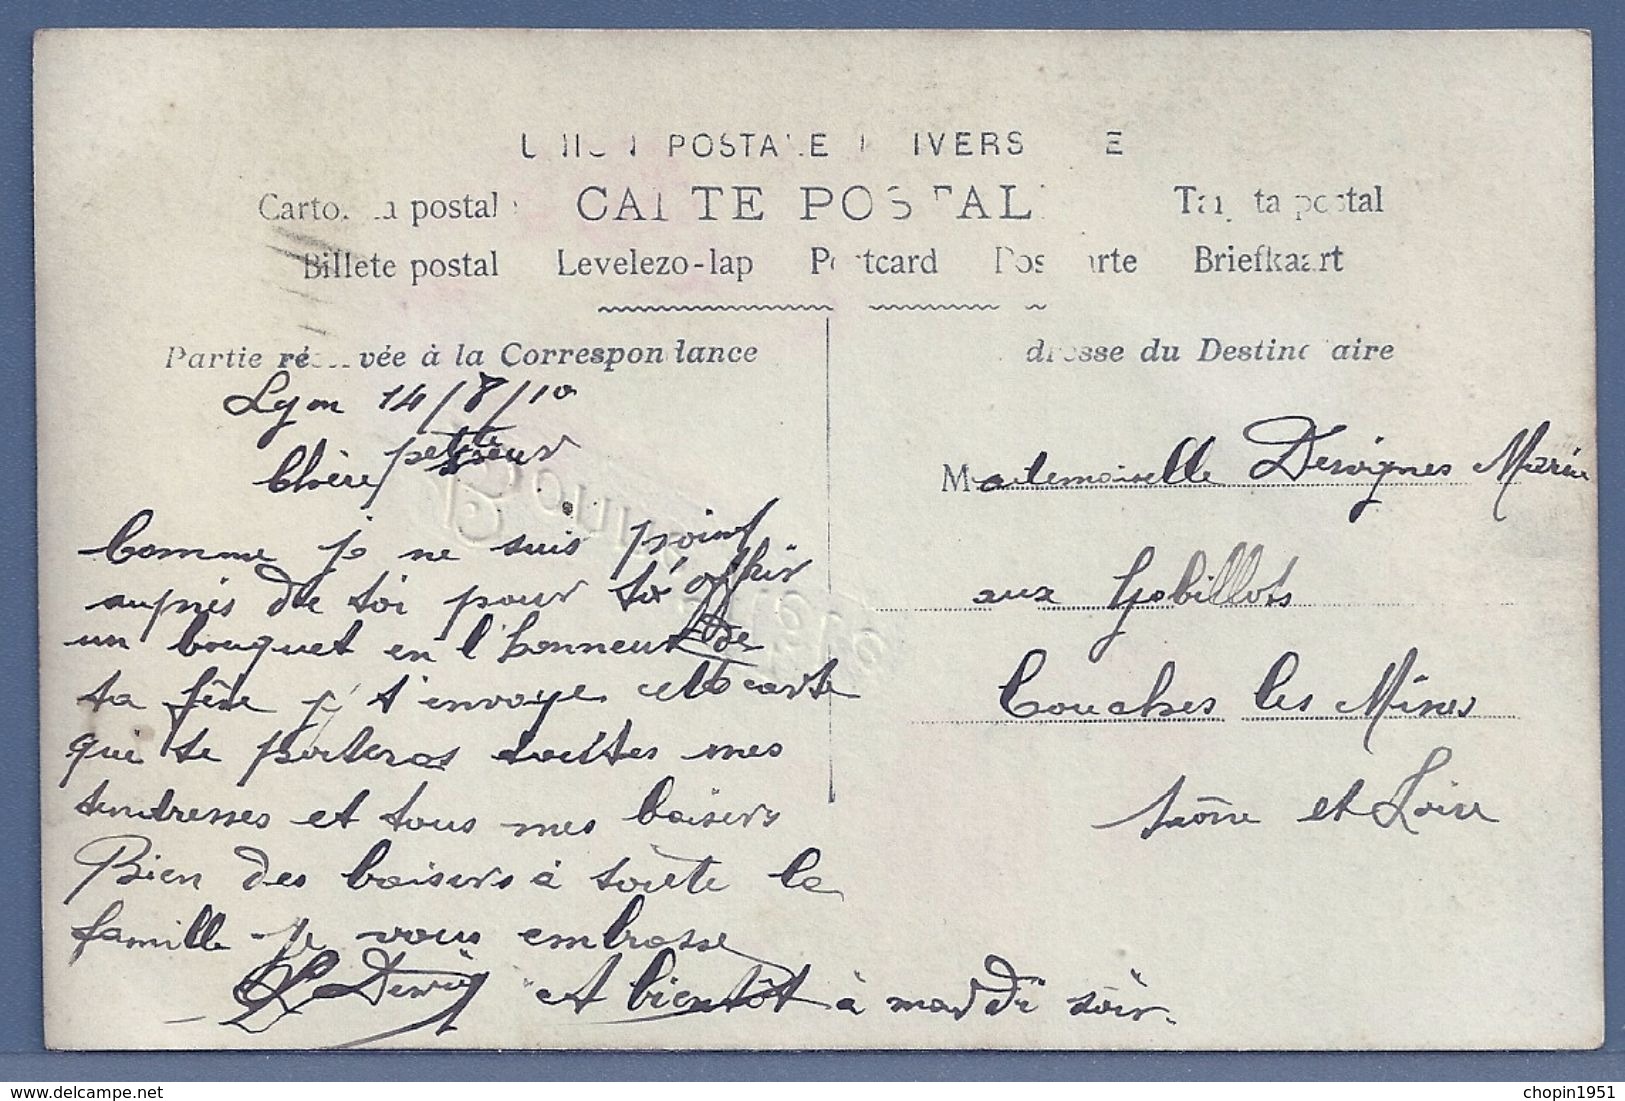 UNION POSTALE UNIVERSELLE
Cartolina postale CARTE POSTALE Tarjeta postal
Billete postal Levelezo-lap Postcard Postkarte Briefkaart
Partie réservée à la Correspondance
Adresse du Destinataire
Lyon 14/8/10
Chère petite sœur
Comme je ne suis point
auprès de toi pour t'offrir
un bouquet en l'honneur de
ta fête je t'envoye cette carte
qui te porteras toutes mes
tendresses et tous mes baisers
Bien des baisers à toute la
famille je vous embrasse
A bientôt à mardi soir.
Mademoiselle Devignes Marie
aux Gobillots
Couches les Mines
Saône et Loire
delcampe.net
chopin1951